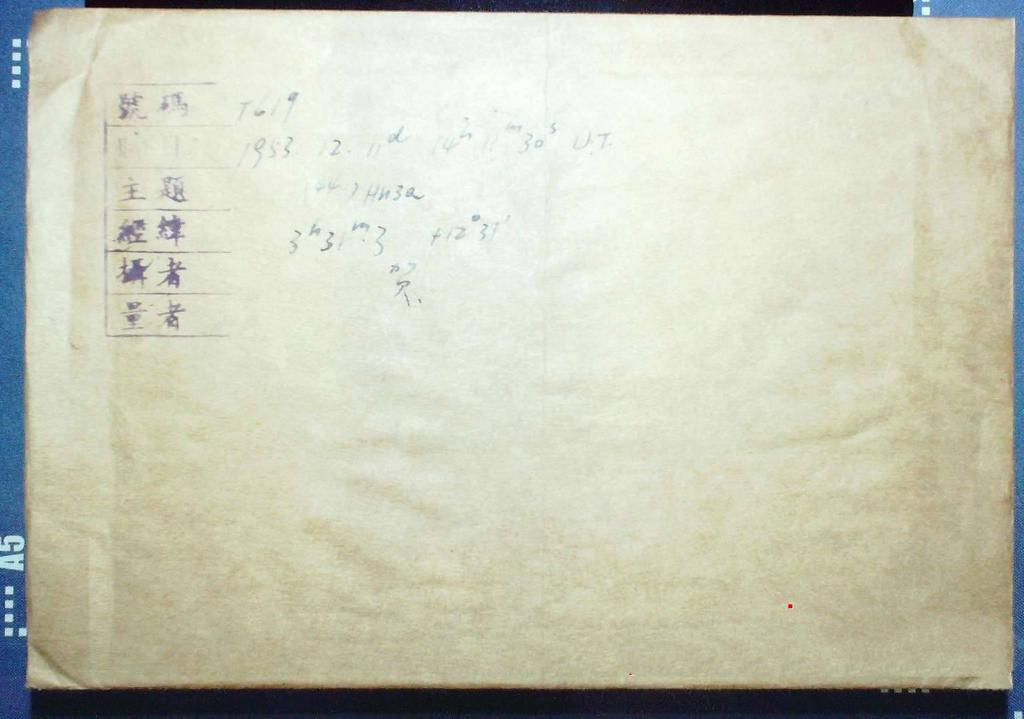 號碼 T619
1953 12. 11d 14h 11m 30s U.T.
主題 (44) Nysa
經緯 3h31m.3 +12°31'
攝者
量者
A5